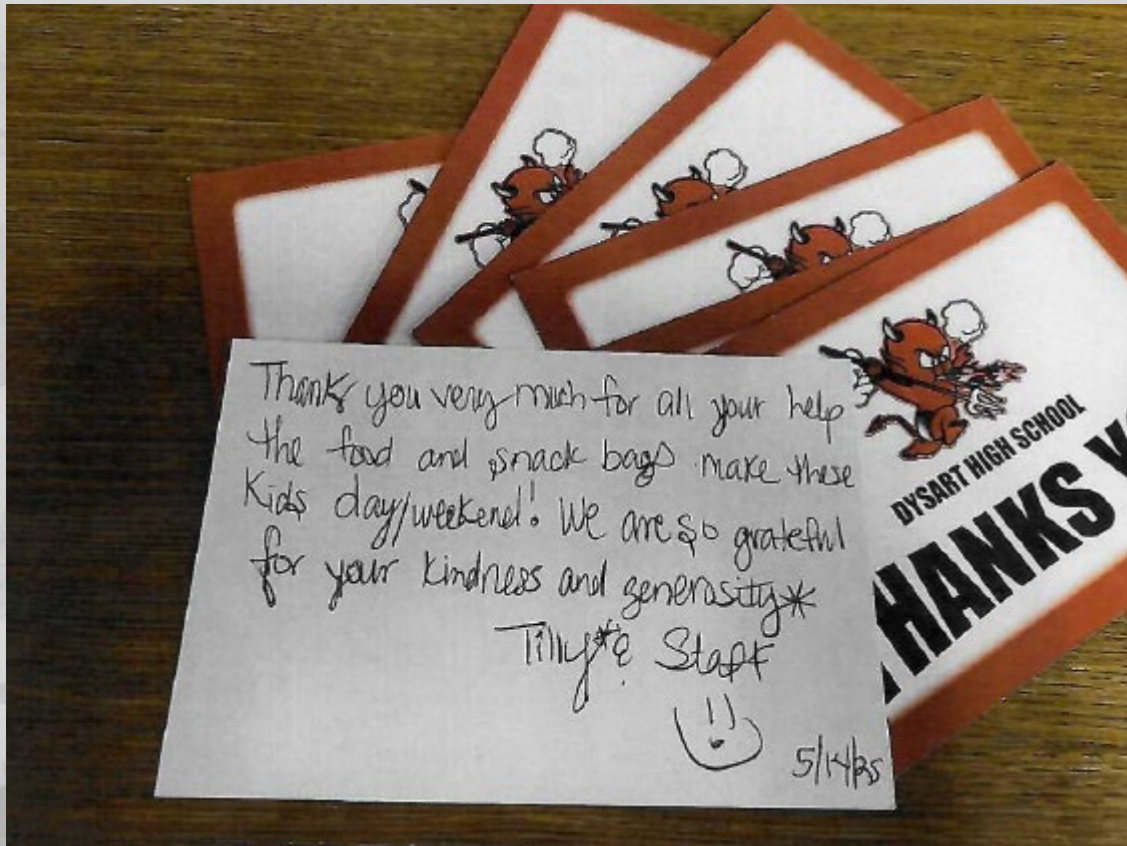 Thank you very much for all your help
the food and snack bags make these
Kids day/weekend! We are so grateful
for your kindness and generosity*
Tilly* & Staff
5/14/25
DYSART HIGH SCHOOL
THANKS